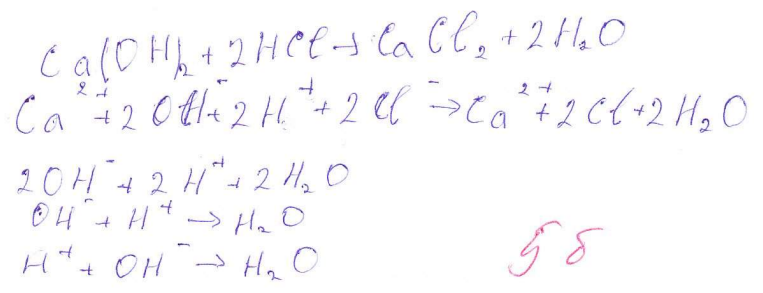 Ca(OH)₂ + 2HCl → CaCl₂ + 2H₂O
Ca²⁺ + 2OH⁻ + 2H⁺ + 2Cl⁻ → Ca²⁺ + 2Cl + 2H₂O
2OH⁻ + 2H⁺ + 2H₂O
OH⁻ + H⁺ → H₂O
H⁺ + OH⁻ → H₂O
5 б